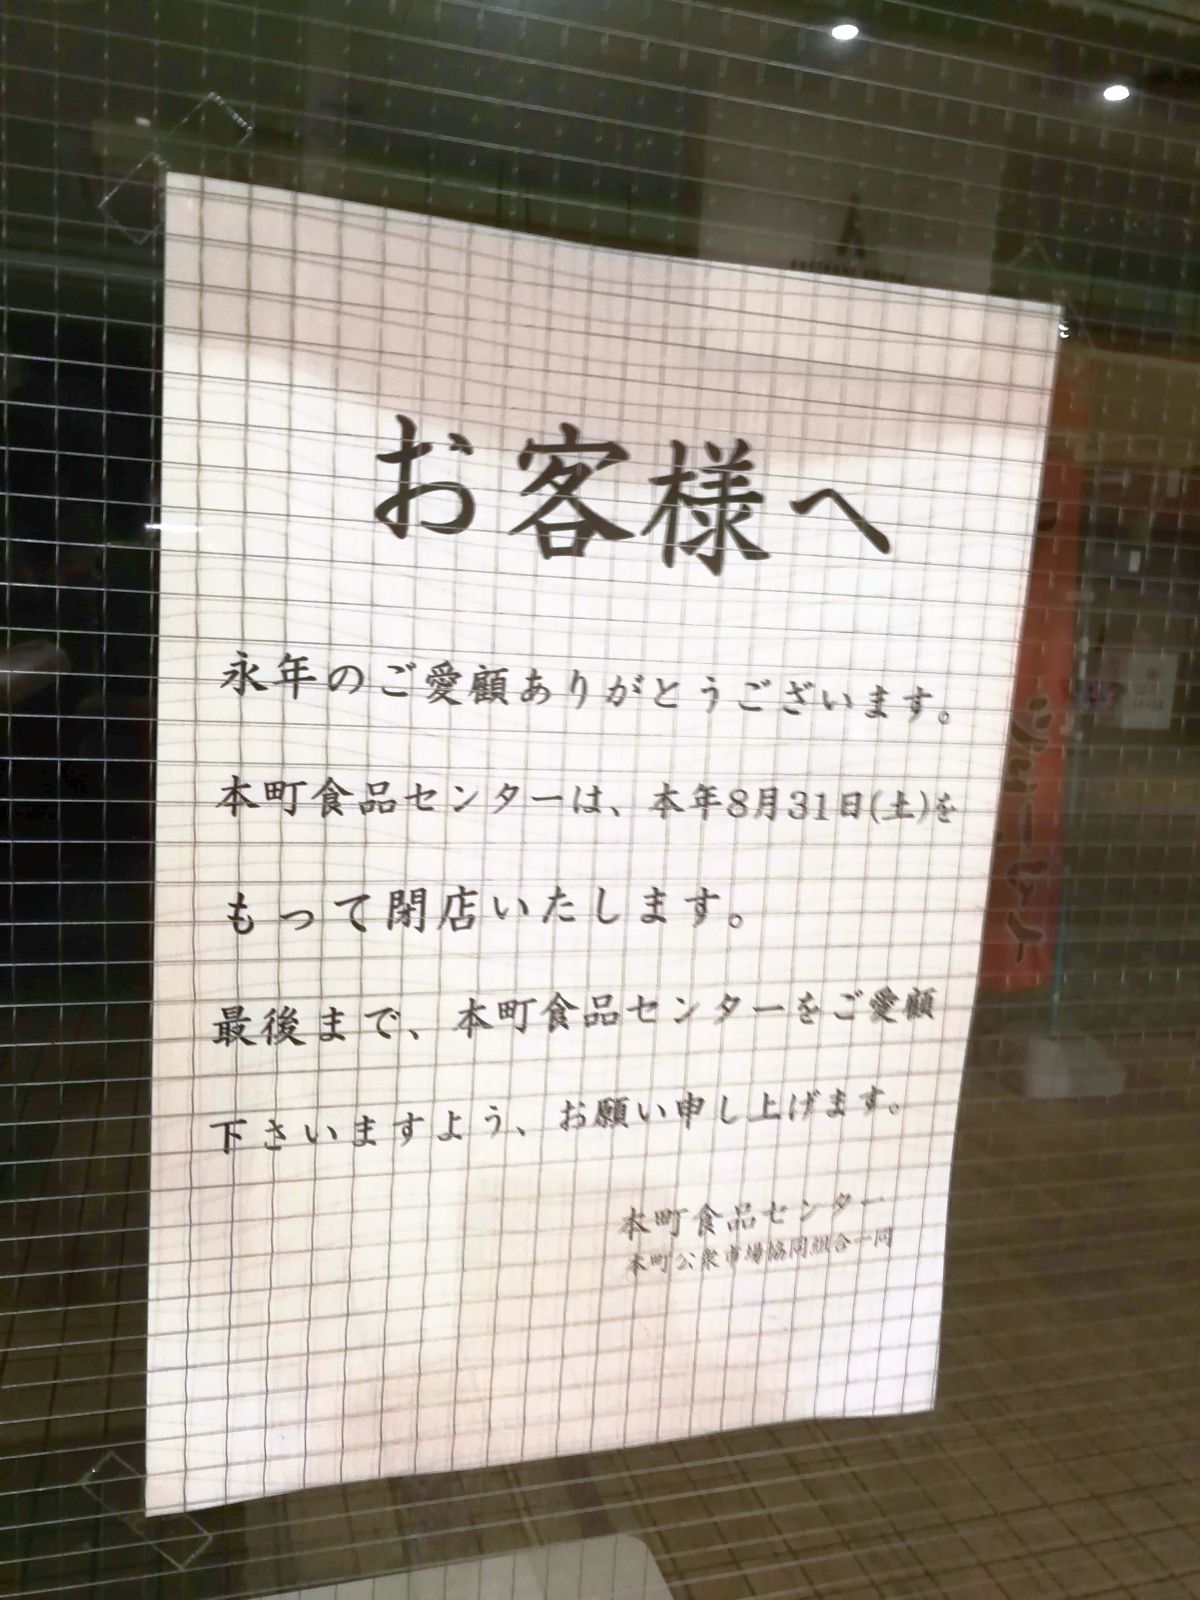 お客様へ
永年のご愛顧ありがとうございます。
本町食品センターは、本年8月31日(土)を
もって閉店いたします。
最後まで、本町食品センターをご愛顧
下さいますよう、お願い申し上げます。
本町食品センター
本町公衆市場協同組合一同